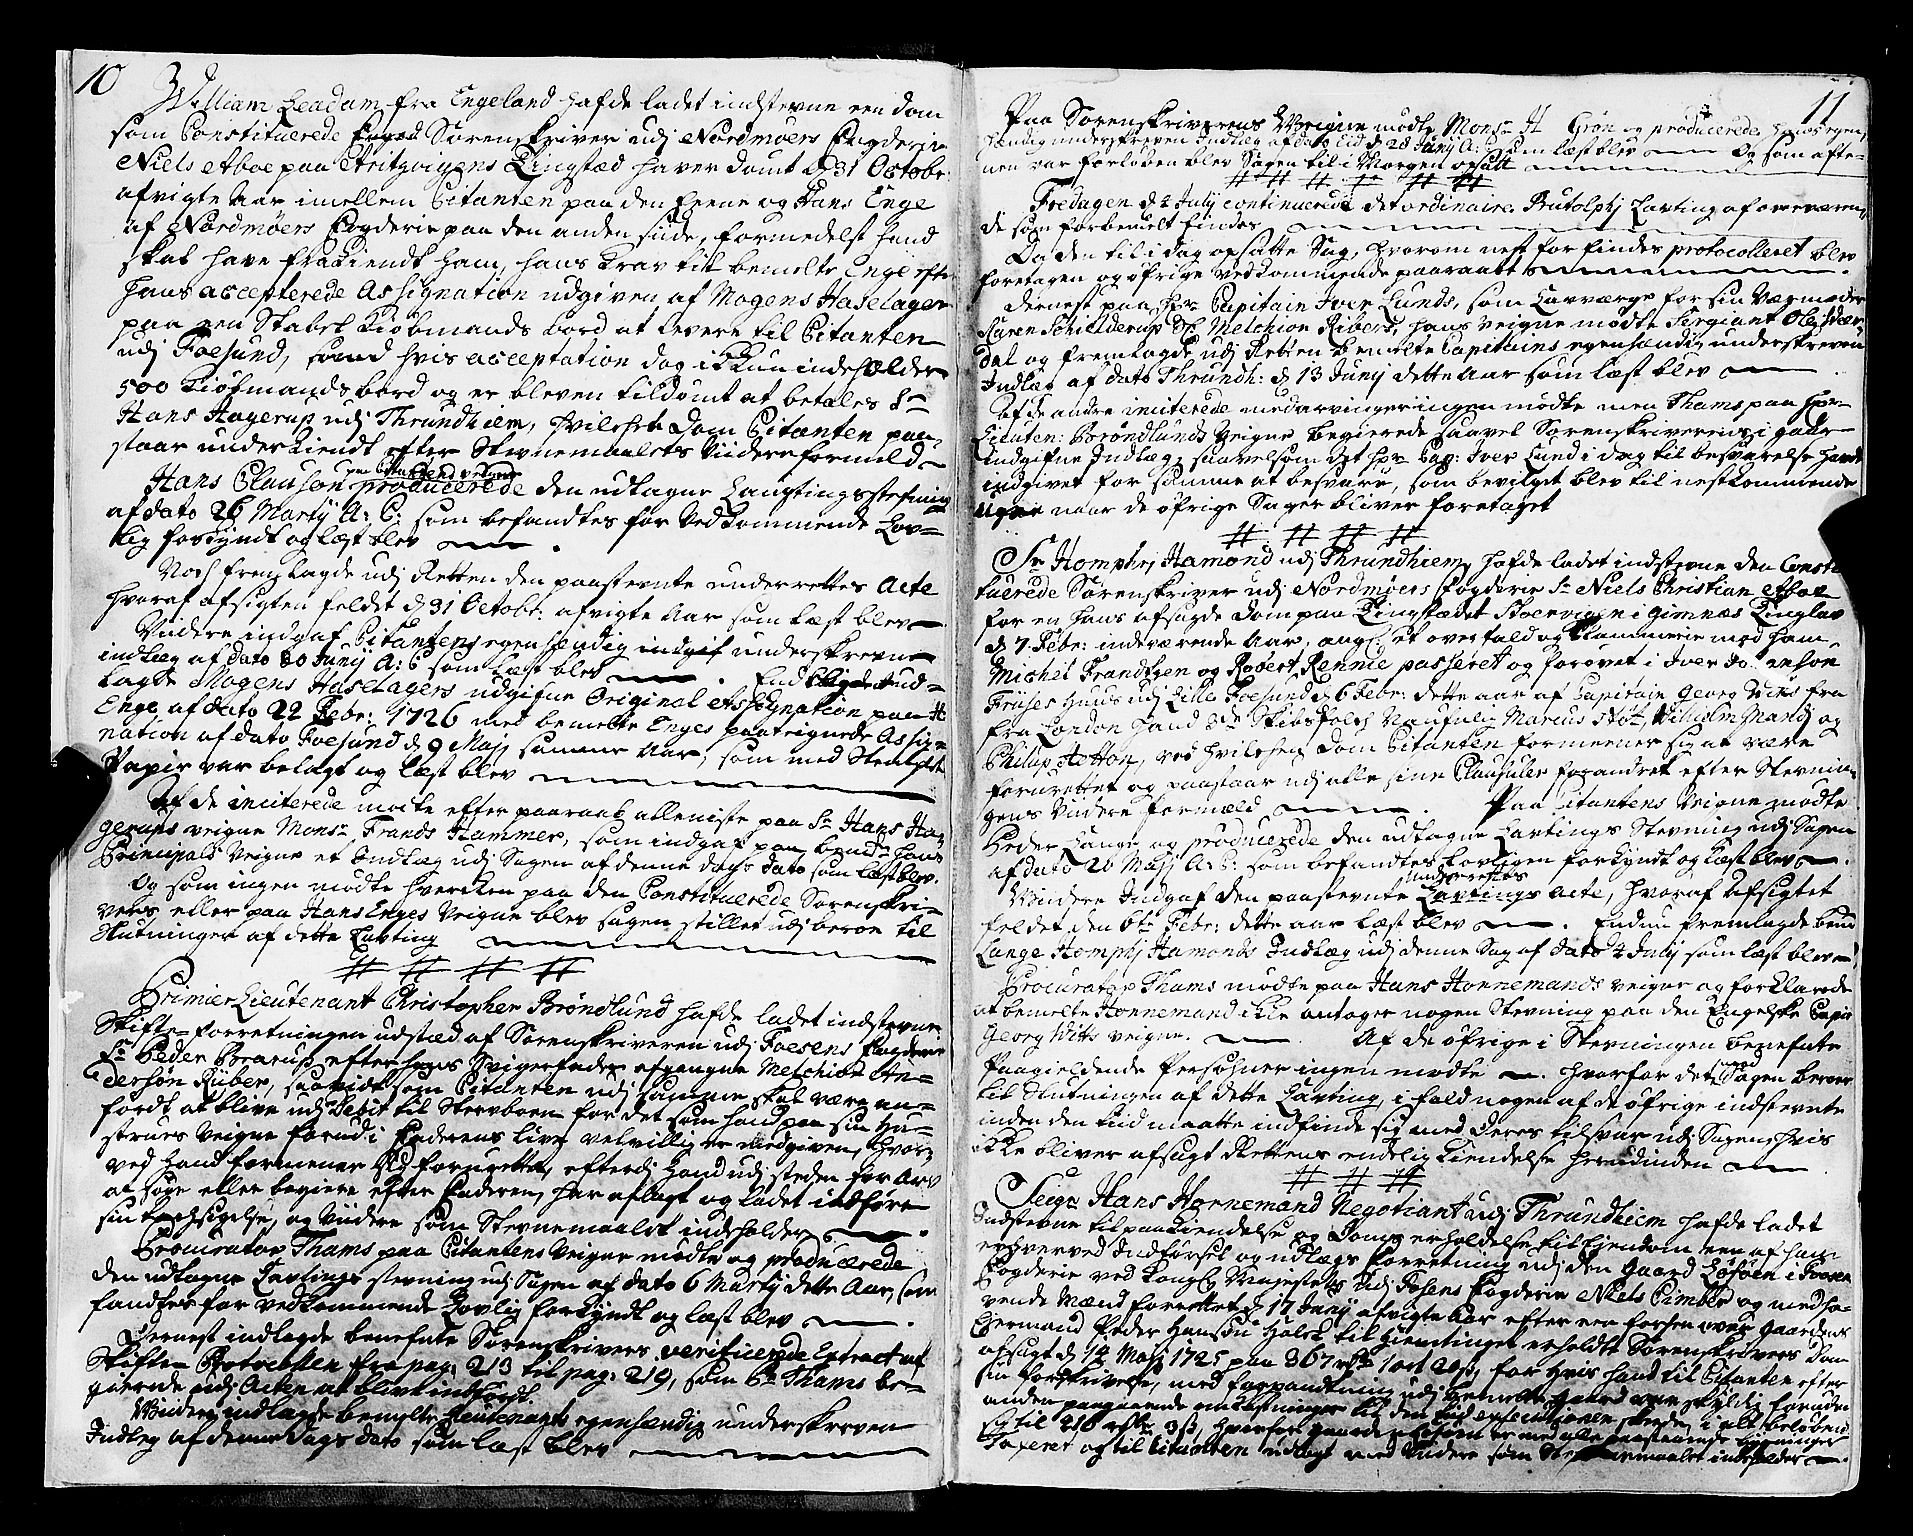 10
William Leadam fra Engeland hafde ladet indstevne een dom
som Constituerede Sorenskriver udj Nordmøers Fogderie
Niels Aboe paa Aritzvigens Tingstæd haver dømt d 31 Octobr:
afvigte Aar imellem Citanten paa den Eene og Hans Enge
af Nordmøers Fogderie paa den anden siide, formedelst hand
skal have frakiendt ham, hans Krav til bemelte Enge efter
hans accepterede Assignation udgiven af Mogens Haselager
paa een Stabel Kiøbmands bord at levere til Citanten
udj Foesund, hvis acceptation dog ikkun indeholder
500 Kiøbmands bord og er bleven tildømt at betales Sr
Hans Hagerup udj Thrundhiem, hvilchet Dom Citanten paa-
staar underkiendt efter Stevnemaalets Viidere formeld
Hans Clauson paa Citantens veigne producerede den udtagne Laugtings stefning
af dato 26 Marty A: C: som befandtes for Vedkommende Lov-
lig forkyndt og læst blev
Noch fremlagde udj Retten den paastevnte underrettes Acte
hvoraf afsigten feldet d 31 Octobr: afvigte Aar som læst blev
Viidere indgaf Citantens egenhændig underskrevne
indlæg af dato 20 Junij A: C som læst blev . End
lagde Mogens Haselagers udgifne Original Assignation paa H
Enge af dato 22 Febr: 1726 med bemelte Enges paategnede Assig-
nation af dato Foesund d 9 Maij samme Aar, som med Stemplet
Papir var belagt og læst blev
Af de inciterede møtte efter paaraab alleniste paa Sr Hans Ha-
gerups veigne Monsr Frands Hammer, som indgaf paa bemte hans
Principals Veigne et Indlæg udj Sagen af denne dags dato som læst blev.
Og som ingen mødte hvercken paa den Constituerede Sorenskri-
vers eller paa Hans Enges Veigne blev sagen stillet udj beroe til
Slutningen af dette Lavting
Primier Lieutenant Christopher Brøndlund hafde ladet indstevne
Skifte-forretningen udstæd af Sorenskriveren udj Foesens Fogderie
Sr Peder Brarup efter hans Svigerfader afgangne Melchior An-
dersøn Riiber, saavidt som Citanten udj samme skal være an-
fordt at blive udj Debit til Stervboen for det som hand paa sin Hu-
strues Veigne forud i Faderens live velvillig er medgiven, hvor-
ved hand formener sig forurettet, efterdj hand udj steden for Arv
at søge eller begiere efter Faderen, har aflagt og ladet indføre
sin fraasigelse, og viidere som Stevnemaalet indeholder
Procurator Thams paa Citantens Veigne mødte og producerede
den udtagne Lavtings stevning udj Sagen af dato 6 Martij dette Aar, som
fandtes for vedkommende Lovlig forkyndt og læst blev
Dernest indlagde benefnte Sorenskrivers verificerede Extract af
Skifte Protocollen fra pag: 213 til pag: 219, som Sr Thams be-
gierede udj Acten at blive indført.
Viidere indlagde bemelte Lieutenants egenhændig underskreven
Indlæg af denne dags dato som læst blev
11
Paa Sorenskriverens Veigne mødte Monsr H Grøn og producerede hans egen
hændig underskreven Indlæg af dato 28 Junij A: C: som læst blev Og som afte-
nen var forløben blev Sagen til i Morgen opsatt
Fredagen d 2 July continuerede det ordinaire Lavting af overværen
de som forbemelt findes
Da den til i dag opsatte Sag, hvorom nest for findes protocolleret blev
foretagen og øfrige vedkommende paaraabt
Dernest paa Hr Capitain Iver Lunds, som Lavværge for sin Værmoder
Karen Schielderup Sl Melchior Riibers, hans veigne mødte Sergiant Ole
dal og fremlagde udj Retten bemelte Capitains egenhændig underskreven
Indlæg af dato Thrundh: d 13 Junij dette Aar som læst blev
Af de andre inciterede medarvinger ingen mødte men Thams paa Hr
Lieuten: Brøndlunds Veigne begierede saavel Sorenskriverens i gaar
indgifne Indlæg, saavelsom det Hr Cap: Iver Lund i dag til besvarelse havde
indgivet for samme at besvare, som bevilget blev til nestkommende
Ugen naar de øfrige Sager bliver foretaget
Sr Homphrj Hamond udj Thrundhiem, hafde ladet indstevne den Consti
tuerede Sorenskriver udj Nordmøers Fogderie Sr Niels Christian Aboe
for en hans afsagde Dom paa Tingstædet Stoervigen i Gimnæs Tinglav
d 7 Febr: indeværende Aar, angl et overfald og Klammerie med ham,
Michel Frandtzen og Robert Rennie passeret og forøvet i Iver
Friises Huus udj Lille Foesund d 6 Febr: dette aar af Capitain Georg Witts fra
fra London hand Skibsfolch Marcus Wilhelm Mandj og
Philip Hotton, ved hvilchen Dom Citanten formeener sig at være
forurettet og paastaar udj alle sine Clausuler forandret efter Stevnin-
gens Viidere formæld . Paa Citantens Veigne mødte
Peder Lange og producerede den udtagne Lavtings Stevning udj Sagen
af dato 26 Maij A: C: som befandtes Lovligen forkyndt og læst blev
Viidere Indgaf den paastevnte underrettes Acte, hvoraf afsigtet
feldet den 6te Febr: dette aar læst blev . Endnu fremlagde bem
Lange Homphj Hamonds Indlæg udj denne Sag af dato 2 July som læst blev
Procurator Thams mødte paa Hans Hornemands veigne og forklarede
at bemelte Hornemand icke antager nogen Stevning paa den Engelske Capit
Georg Witts veigne. Af de øfrige i Stevningen benefnte
Paagieldende Persohner ingen mødte . hvorfor det Sagen beroer
til Slutningen af dette Lavting, i fald nogen af de øfrige indstevnte
inden den tiid maatte indfinde sig med deres tilsvar udj Sagen, hvis
ikke bliver afsagt Rettens endelig Kiendelse herudinden
Seigr Hans Hornemand Negotiant udj Thrundhiem hafde ladet
Indstevne til paakiendelse og Doms erholdelse til Eiendom een af ham
erhvervede Indførsel og udlægs forretning udj den gaard Løsøen i Foosen
Fogderie ved Kongl Majestets udj Fosens Fogderie Niels Pimber og medha-
vende Mænd forrettet d 17 Junij afvigte Aar efter een forhen over gaardens
Eiermand Peder Hansøn Holst til hiemtinget erholdt Sorenskrivers Dom
afsagt d 14 Maij 1725 paa 367 rdr 1 ort 20 s, for hvis hand til Citanten efter
sin forskrivelse, med forpandtning udj bemelte gaard var skyldig foruden
anden paagaaende omkostninger til den tiid executionen skeede, i alt beløbende
sig til 216 rdr 3 s, hvorfor gaarden Løsøen er med alle
Taxeret og til Citanten udlagt med viidere som Stevnemaalet indeholder